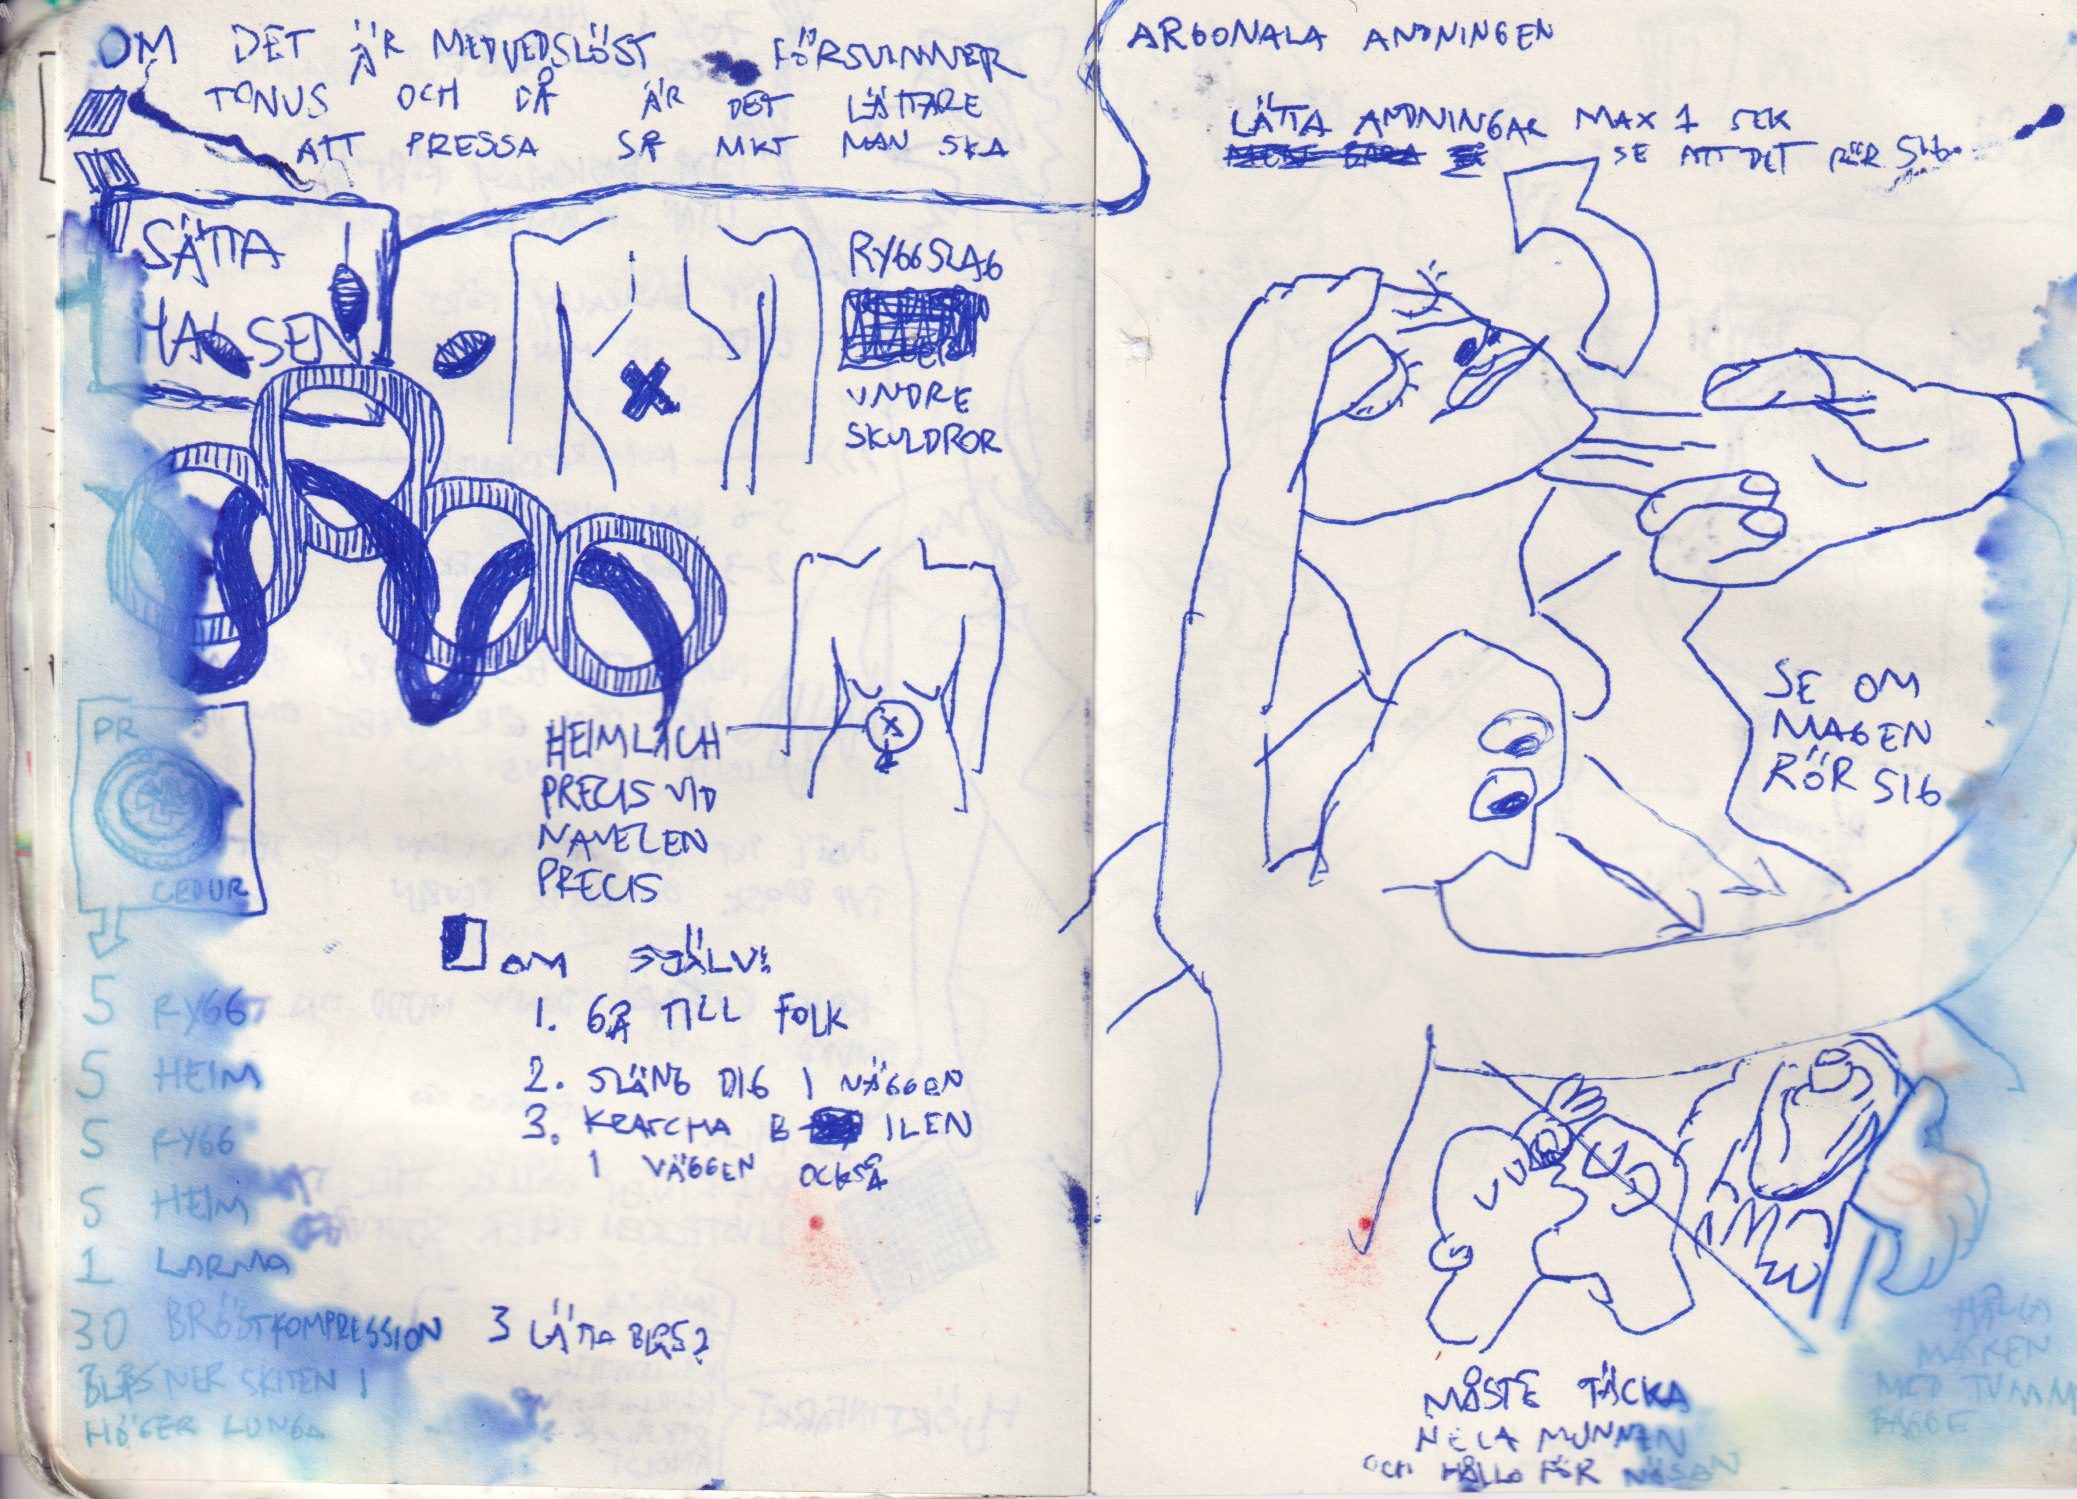 OM DET ÄR MEDVEDSLÖST FÖRSVINNER
TONUS OCH DÅ ÄR DET LÄTTARE
ATT PRESSA SÅ MKT MAN SKA
SÄTTA
HALSEN
RYGGSLAG
UNDRE
SKULDROR
HEIMLICH
PRECIS VID
NAVELEN
PRECIS
PR
CEDUR
5 RYGG
5 HEIM
5 RYGG
5 HEIM
1 LARMA
30 BRÖSTKOMPRESSION 3 LÄTTA BLÅS?
BLÅS NER SKITEN I
HÖGER LUNGA
OM SJÄLV:
1. GÅ TILL FOLK
2. SLÄNG DIG I VÄGGEN
3. KRATCHA B ILEN
I VÄGGEN OCKSÅ
ARGONALA ANDNINGEN
LÄTTA ANDNINGAR MAX 1 SEK
SE ATT DET RÖR SIG.
SE OM
MAGEN
RÖR SIG
MÅSTE TÄCKA
HELA MUNNEN
OCH HÅLLA FÖR NÄSAN
HÅLLA
MASKEN
MED TUMM
BÅGGE